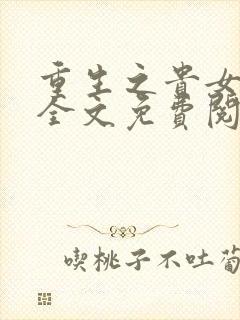 重生之貴女
全文免費閱
喫桃子不吐葡